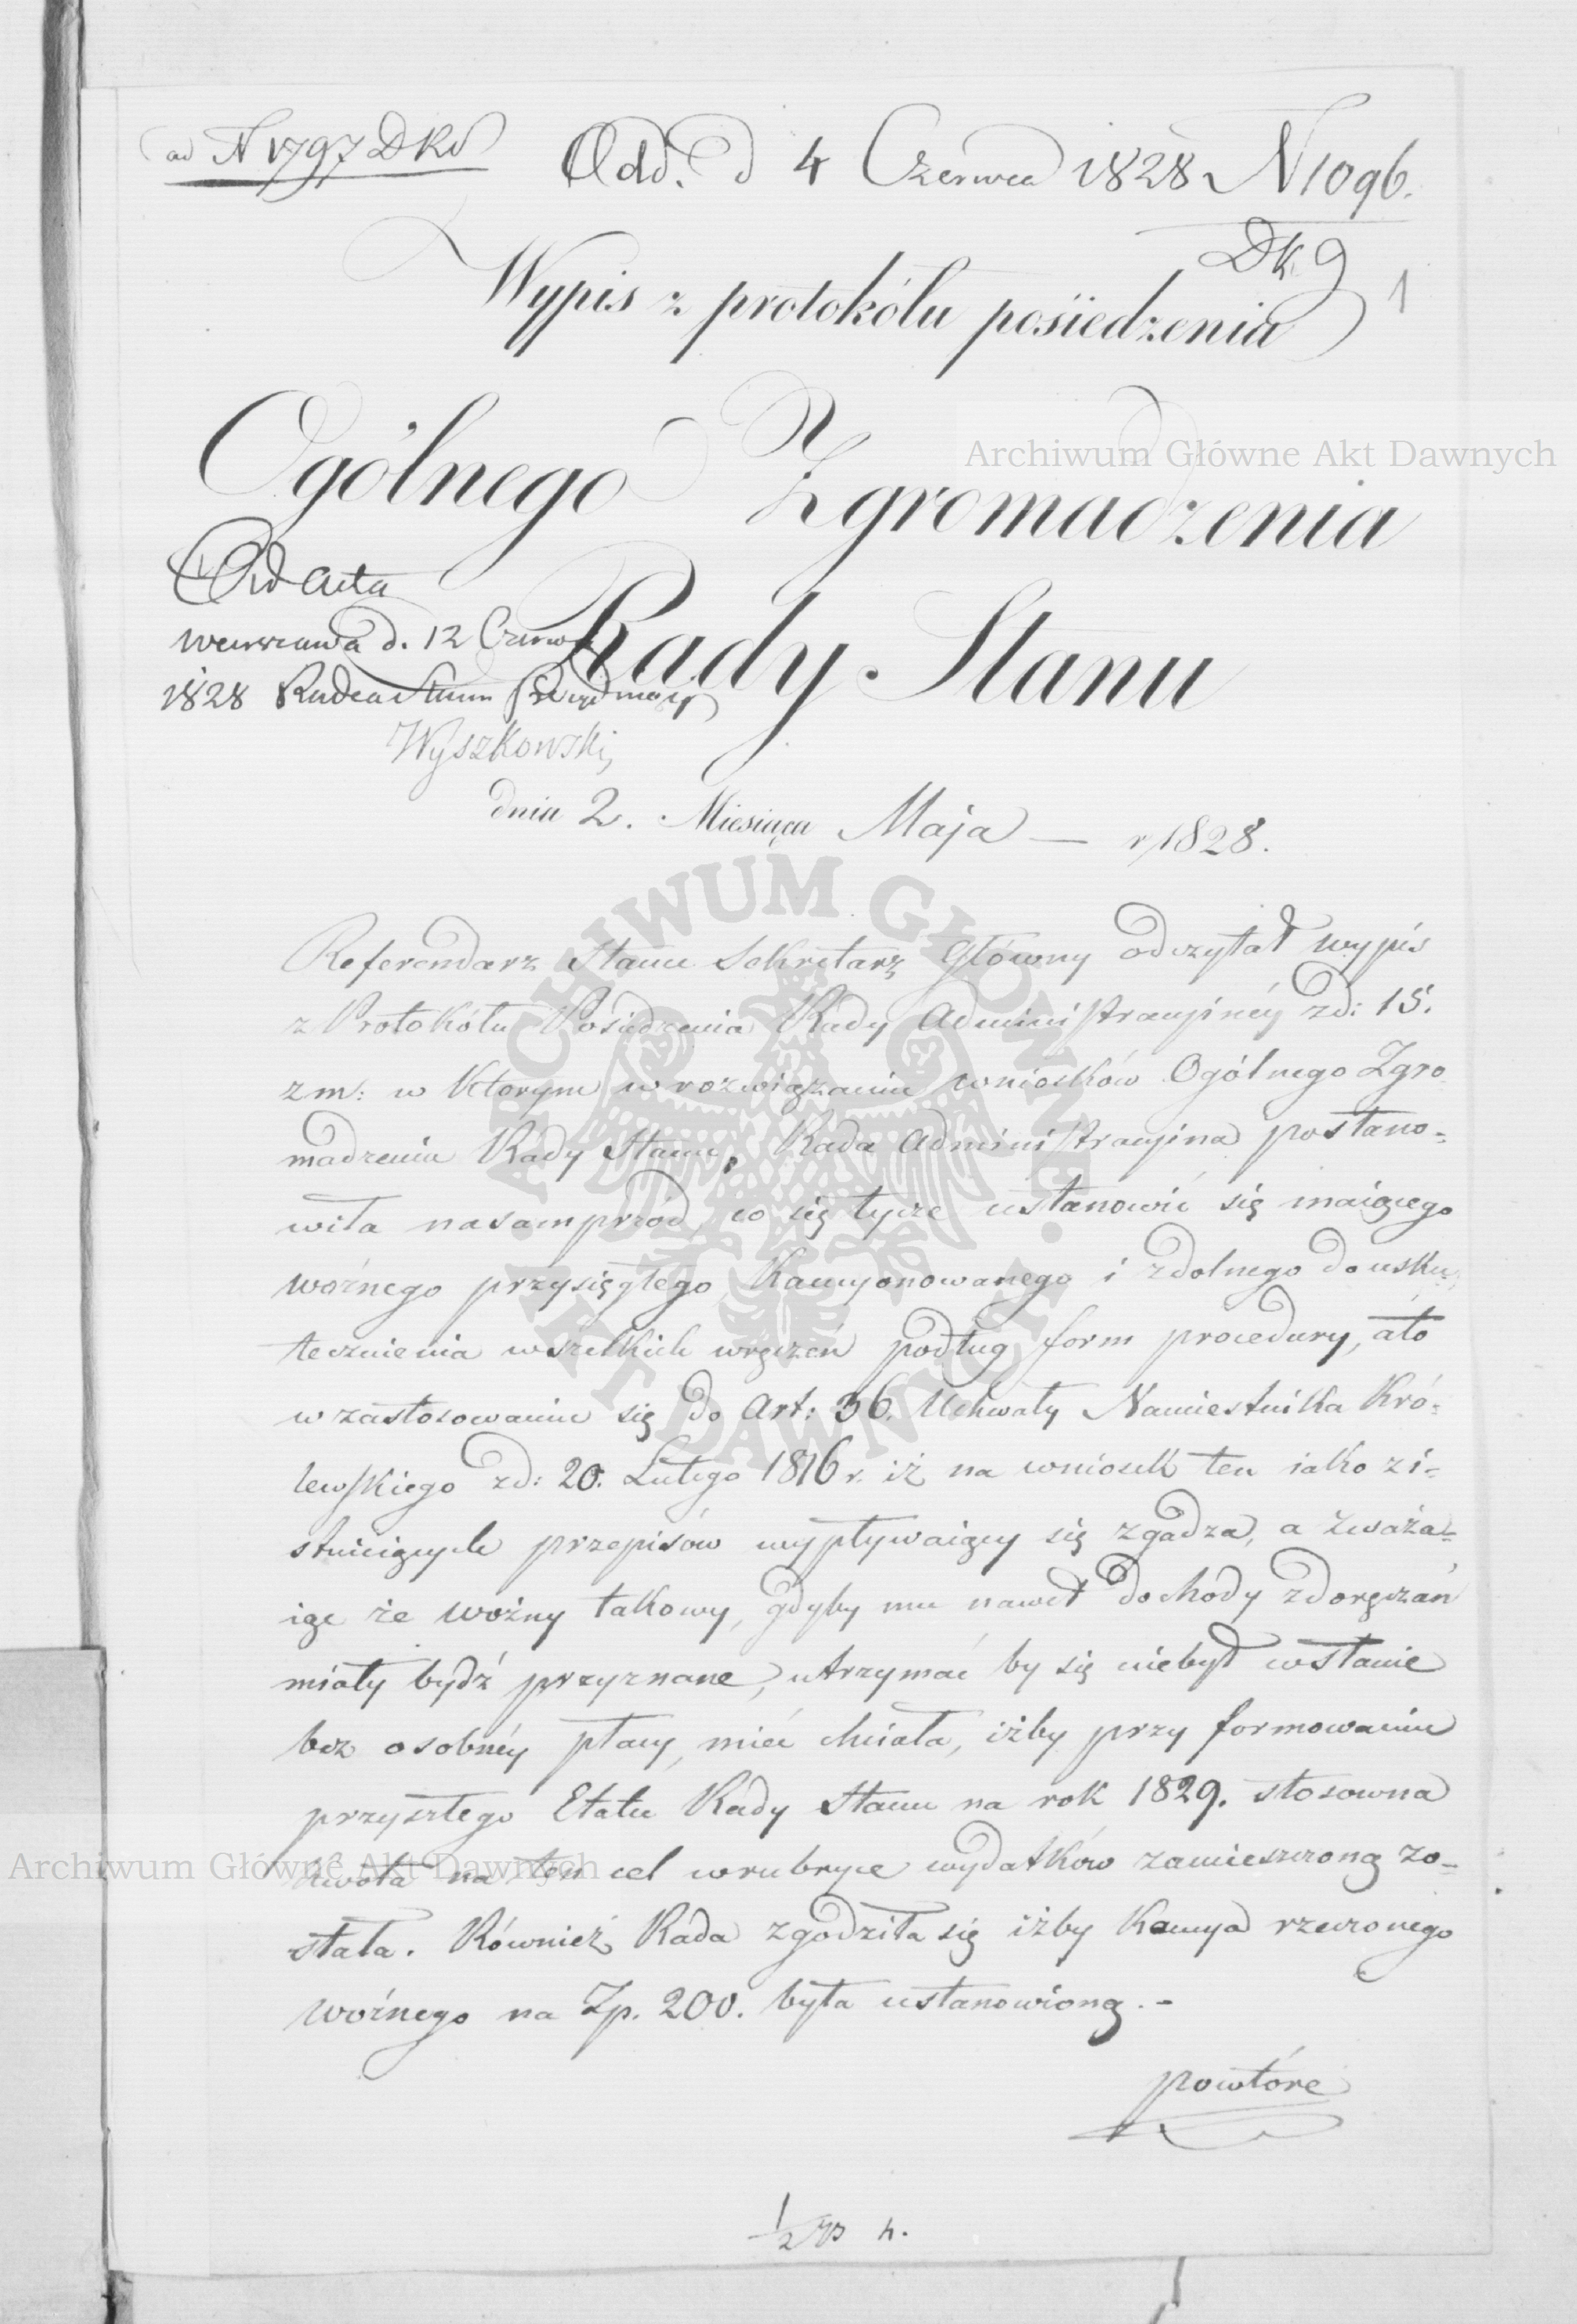 ad N 1797 DKS
Odd. d 4 Czerwca 1828 N 1096.
DKS
1
Wypis z protokółu posiedzenia
Ogólnego Zgromadzenia
Rady Stanu
Ad acta
Warszawa d. 12 Czerwca
1828 Radca Stanu
Wyszkowski
dnia 2. Miesiąca Maja — r 1828.
Referendarz Stanu Sekretarz Główny odczytał wypis
z Protokółu Posiedzenia Rady Administracyinéy z d: 15.
z m: w którym w rozwiązaniu wniosków Ogólnego Zgro-
madzenia Rady Stanu, Rada Administracyina postano-
wiła nasamprzód, co się tycze ustanowić się maiącego
woźnego przysięgłego kaucyonowanego i zdolnego do usku-
tecznienia wszelkich wręczeń podług form procedury, a to
w zastosowaniu się do Art: 36. Uchwały Namiestnika Kró-
lewskiego z d: 20. Lutego 1816 r. iż na wniosek ten iako z i-
stnieiących przepisów wypływaiący się zgadza, a zważa-
iąc że woźny takowy, gdyby mu nawet dochody z doręczań
miały bydź przyznane, utrzymać by się niebył w stanie
bez osobnéy płacy, mieć chciała, iżby przy formowaniu
przyszłego Etatu Rady Stanu na rok 1829. stosowna
kwota na ten cel w rubryce wydatków zamieszczoną zo-
stała. Również Rada zgodziła się iżby kaucya rzeczonego
woźnego na Zp. 200. była ustanowioną.-
powtóre
Archiwum Główne Akt Dawnych
Archiwum Główne Akt Dawnych
ARCHIWUM GŁÓWNE · AKT DAWNYCH ·